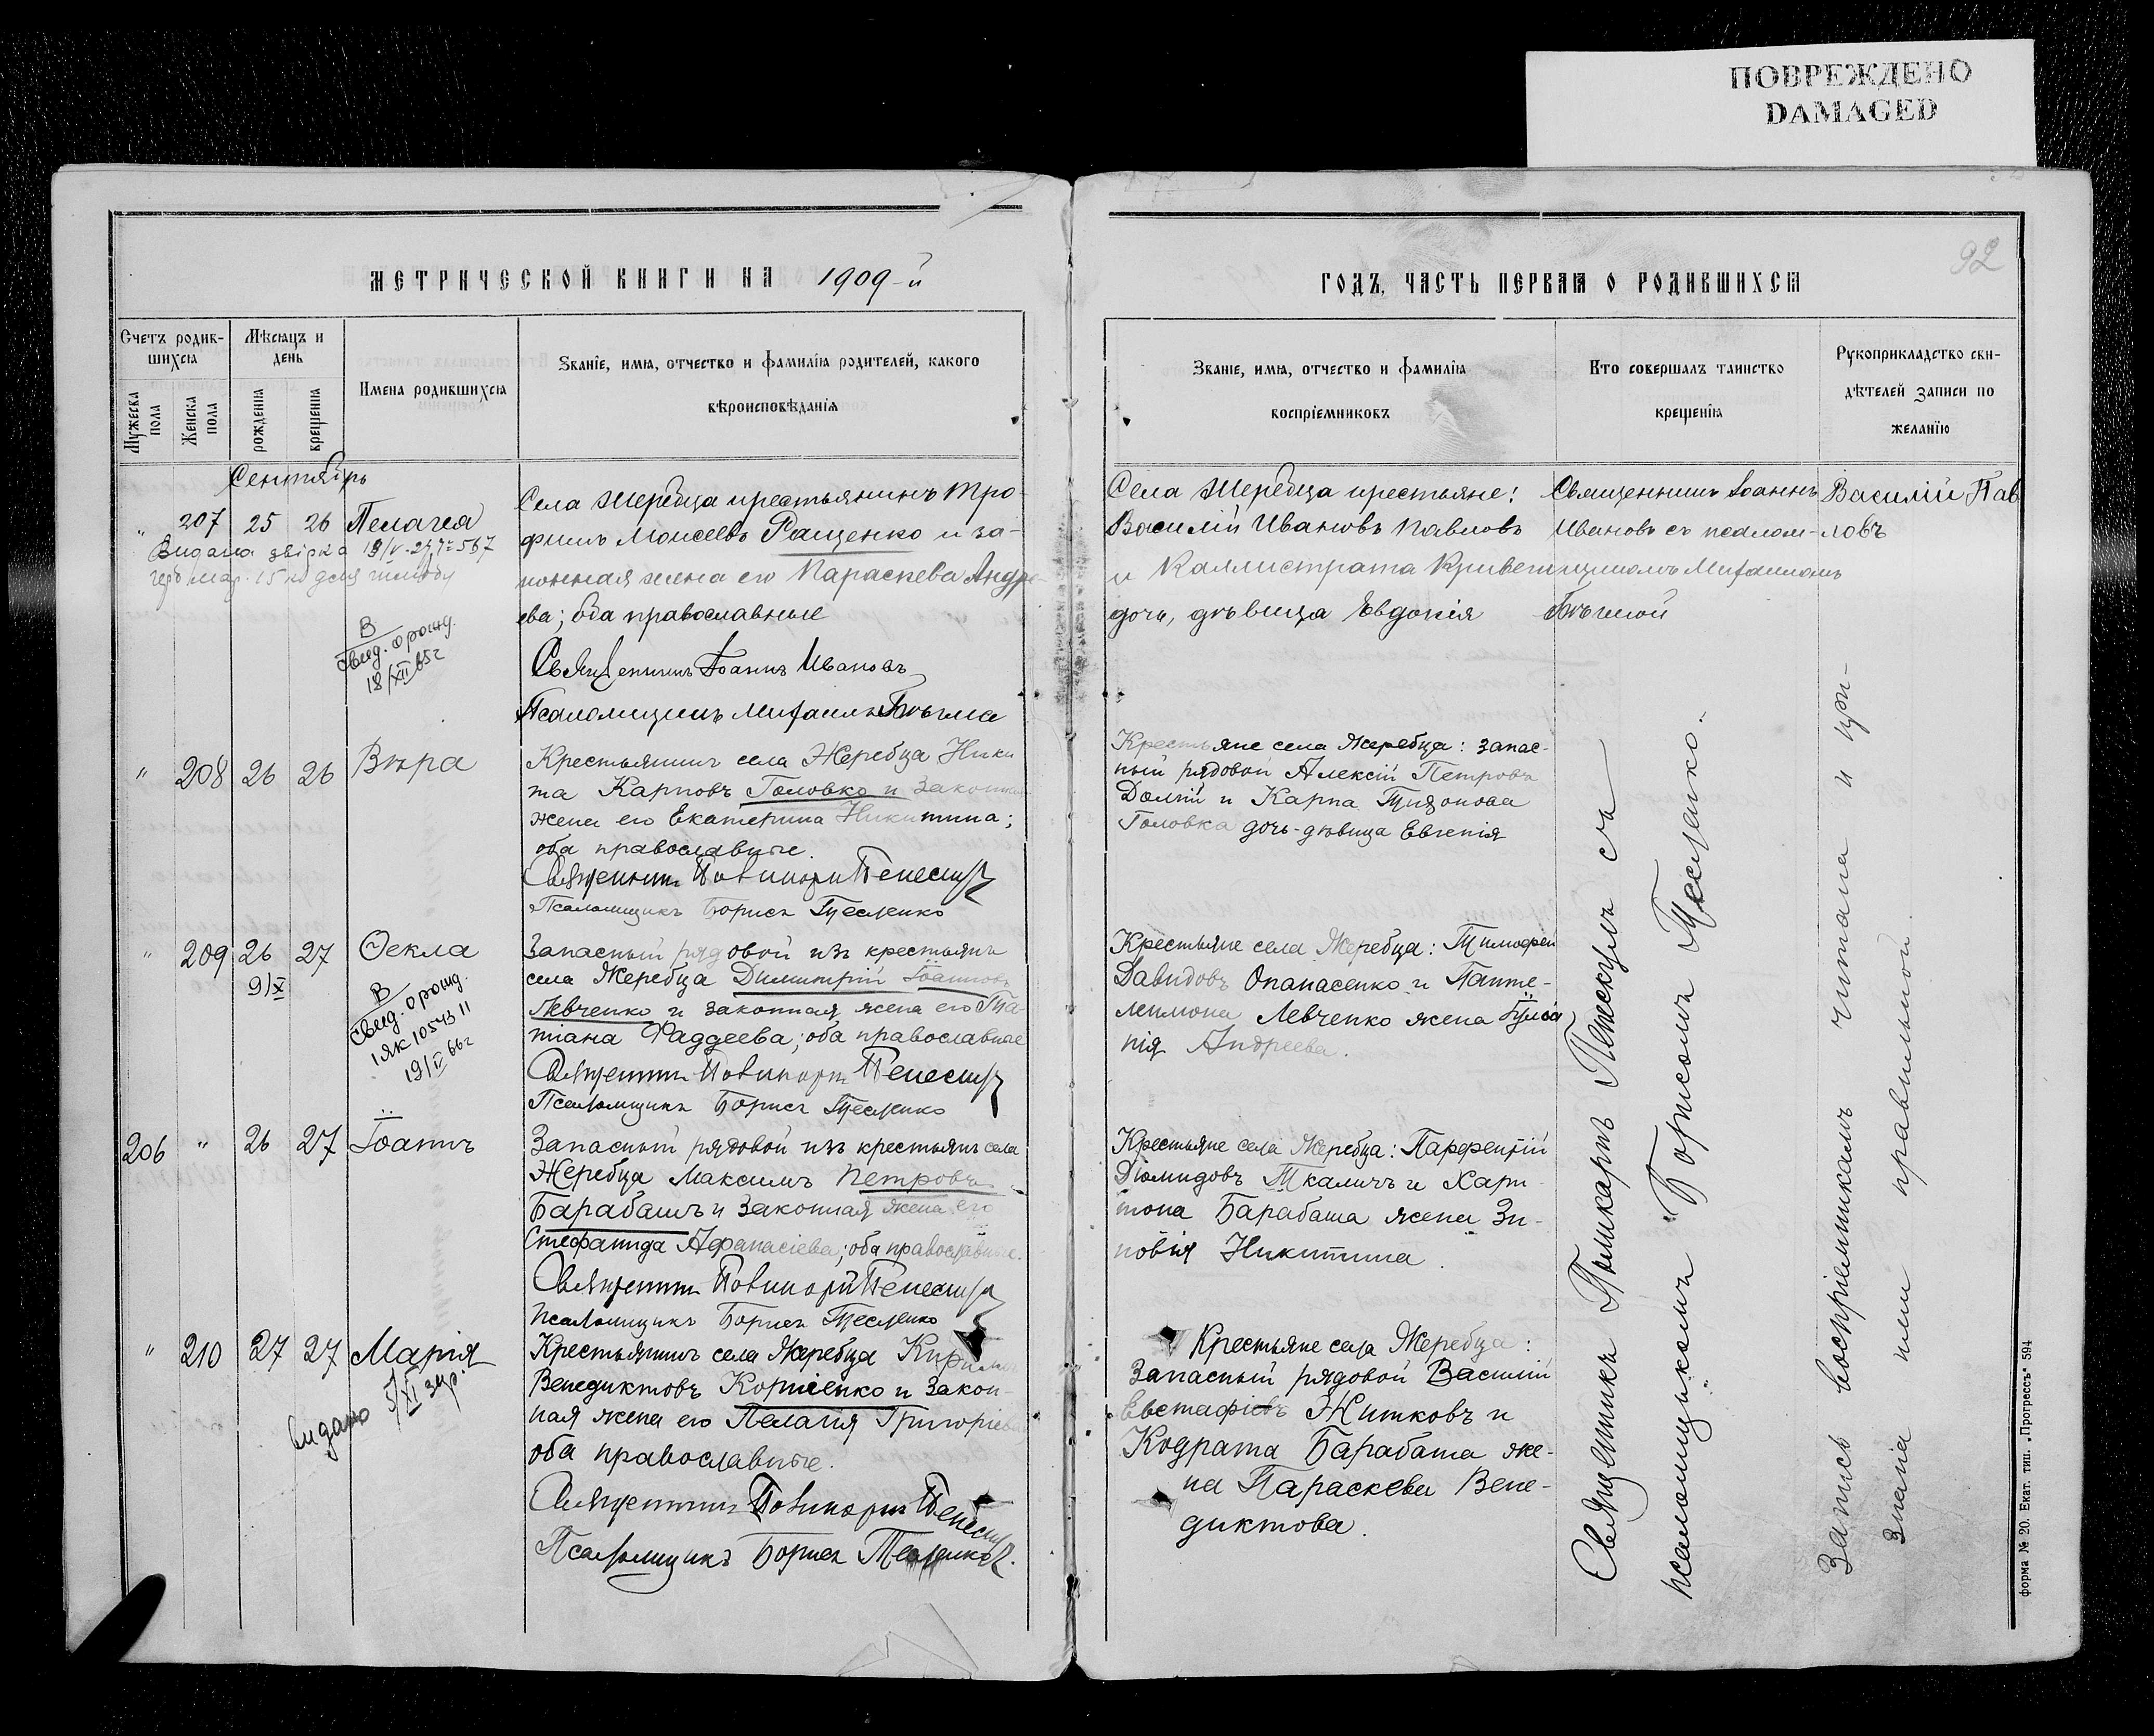 ПОВРЕЖДЕНО
DAMAGED
92
МЕТРИЧЕСКОЙ КНИГИ НА 1909-й
ГОДЪ, ЧАСТЬ ПЕРВАЯ О РОДИВШИХСЯ
Счетъ родив-
шихся
Мужеска пола
Женска пола
Мѣсяцъ и
день
рожденія
крещенія
Имена родившихся
Званіе, имя, отчество и фамилія родителей, какого
вѣроисповѣданія
Званіе, имя, отчество и фамилія
воспріемниковъ
Кто совершалъ таинство
крещенія
Рукоприкладство сви-
дѣтелей записи по
желанію
Сентябрь
" 207 25 26 Пелагея
Видана звірка
Села Жеребца крестьянинъ Тро-
фимъ Моисеевъ Ращенко и за-
конная жена его Параскева Андре-
ева; оба православные
Священникъ Іоаннъ Ивановъ
Псаломщикъ Михаилъ Бѣгма
Села Жеребца крестьяне:
Василій Ивановъ Павловъ
и Каллистрата
дочь, дѣвица Евдокія
Священникъ Іоаннъ
Ивановъ съ псалом-
щикомъ Михаиломъ
Бѣгмой
Василій Пав
ловъ
В
свид. о рожд.
18/XII 65г
" 208 26 26 Вѣра
Крестьянинъ села Жеребца Ники
та Карповъ Головко и законная
жена его Екатерина Никитина;
оба православные.
Священникъ
Псаломщикъ Борисъ Тесленко
Крестьяне села Жеребца: запас-
ный рядовой Алексій Петровъ
Долгій и Карпа
Головка дочь-дѣвица Евгенія
" 209 26 27 Ѳекла
9/X
В
свид. о рожд.
1ЯК 1054311
19/V 66г
Запасный рядовой изъ крестьянъ
села Жеребца Димитрій Іоанновъ
Левченко и законная жена его Та-
тіана Фаддеева; оба православные
Священникъ
Псаломщикъ Борисъ Тесленко
Крестьяне села Жеребца: Тимофей
Давидовъ Опанасенко и Панте-
леимона Левченко жена Іуліа-
нія Андреева.
206 " 26 27 Іоаннъ
Запасный рядовой изъ крестьянъ села
Жеребца Максимъ Петровъ
Барабашъ и законная жена его
Стефанида Афанасіева; оба православные.
Священникъ
Псаломщикъ Борисъ Тесленко
Крестьяне села Жеребца: Парфентій
Діомидовъ Ткаличъ и Хари-
тона Барабаша жена Зи-
новія Никитина.
" 210 27 27 Марія
видано
Крестьянинъ села Жеребца
Венедиктовъ Корніенко и закон-
ная жена его Пелагія Григоріева
оба православные.
Священникъ
Псаломщикъ Борисъ Тесленко.
Крестьяне села Жеребца:
Запасный рядовой Василій
Евстафіевъ Житковъ и
Кодрата Барабаша же-
на Параскева Вене-
диктова.
Священникъ Поликарпъ Пенескулъ съ
псаломщикомъ Борисомъ Тесленко.
Запись воспріемникамъ читана и при-
знана ими правильной.
форма № 20. Екат. тип. „Прогрессъ" 594